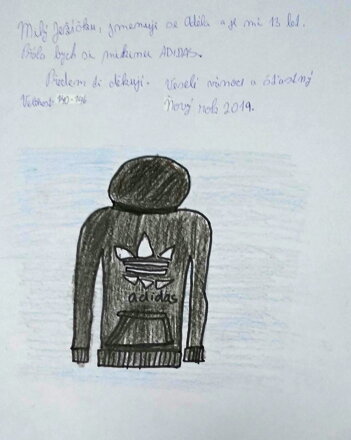 Milý Ježíšku, jmenuji se Adéla a je mi 13 let.
Přála bych si mikinu ADIDAS.
Předem ti děkuji. Veselé vánoce a šťastný
Velikost: 140-146 Nový rok 2019.
adidas